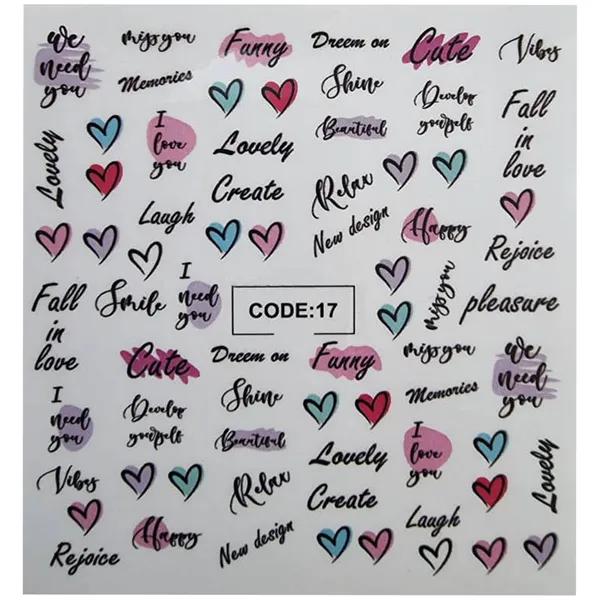 we
need
you
miss you
Memories
Funny
Dreem on
Shine
Beautiful
Cute
Develop
yourself
Vibes
Fall
in
love
Lovely
I
love
you
Lovely
Create
Relax
New design
Happy
Rejoice
Laugh
Smile
I
need
you
CODE:17
miss you
pleasure
Fall
in
love
Cute
Dreem on
Funny
miss you
we
need
you
I
need
you
Develop
yourself
Shine
Beautiful
Memories
I
love
you
Lovely
Vibes
Relax
Lovely
Create
Rejoice
Happy
New design
Laugh